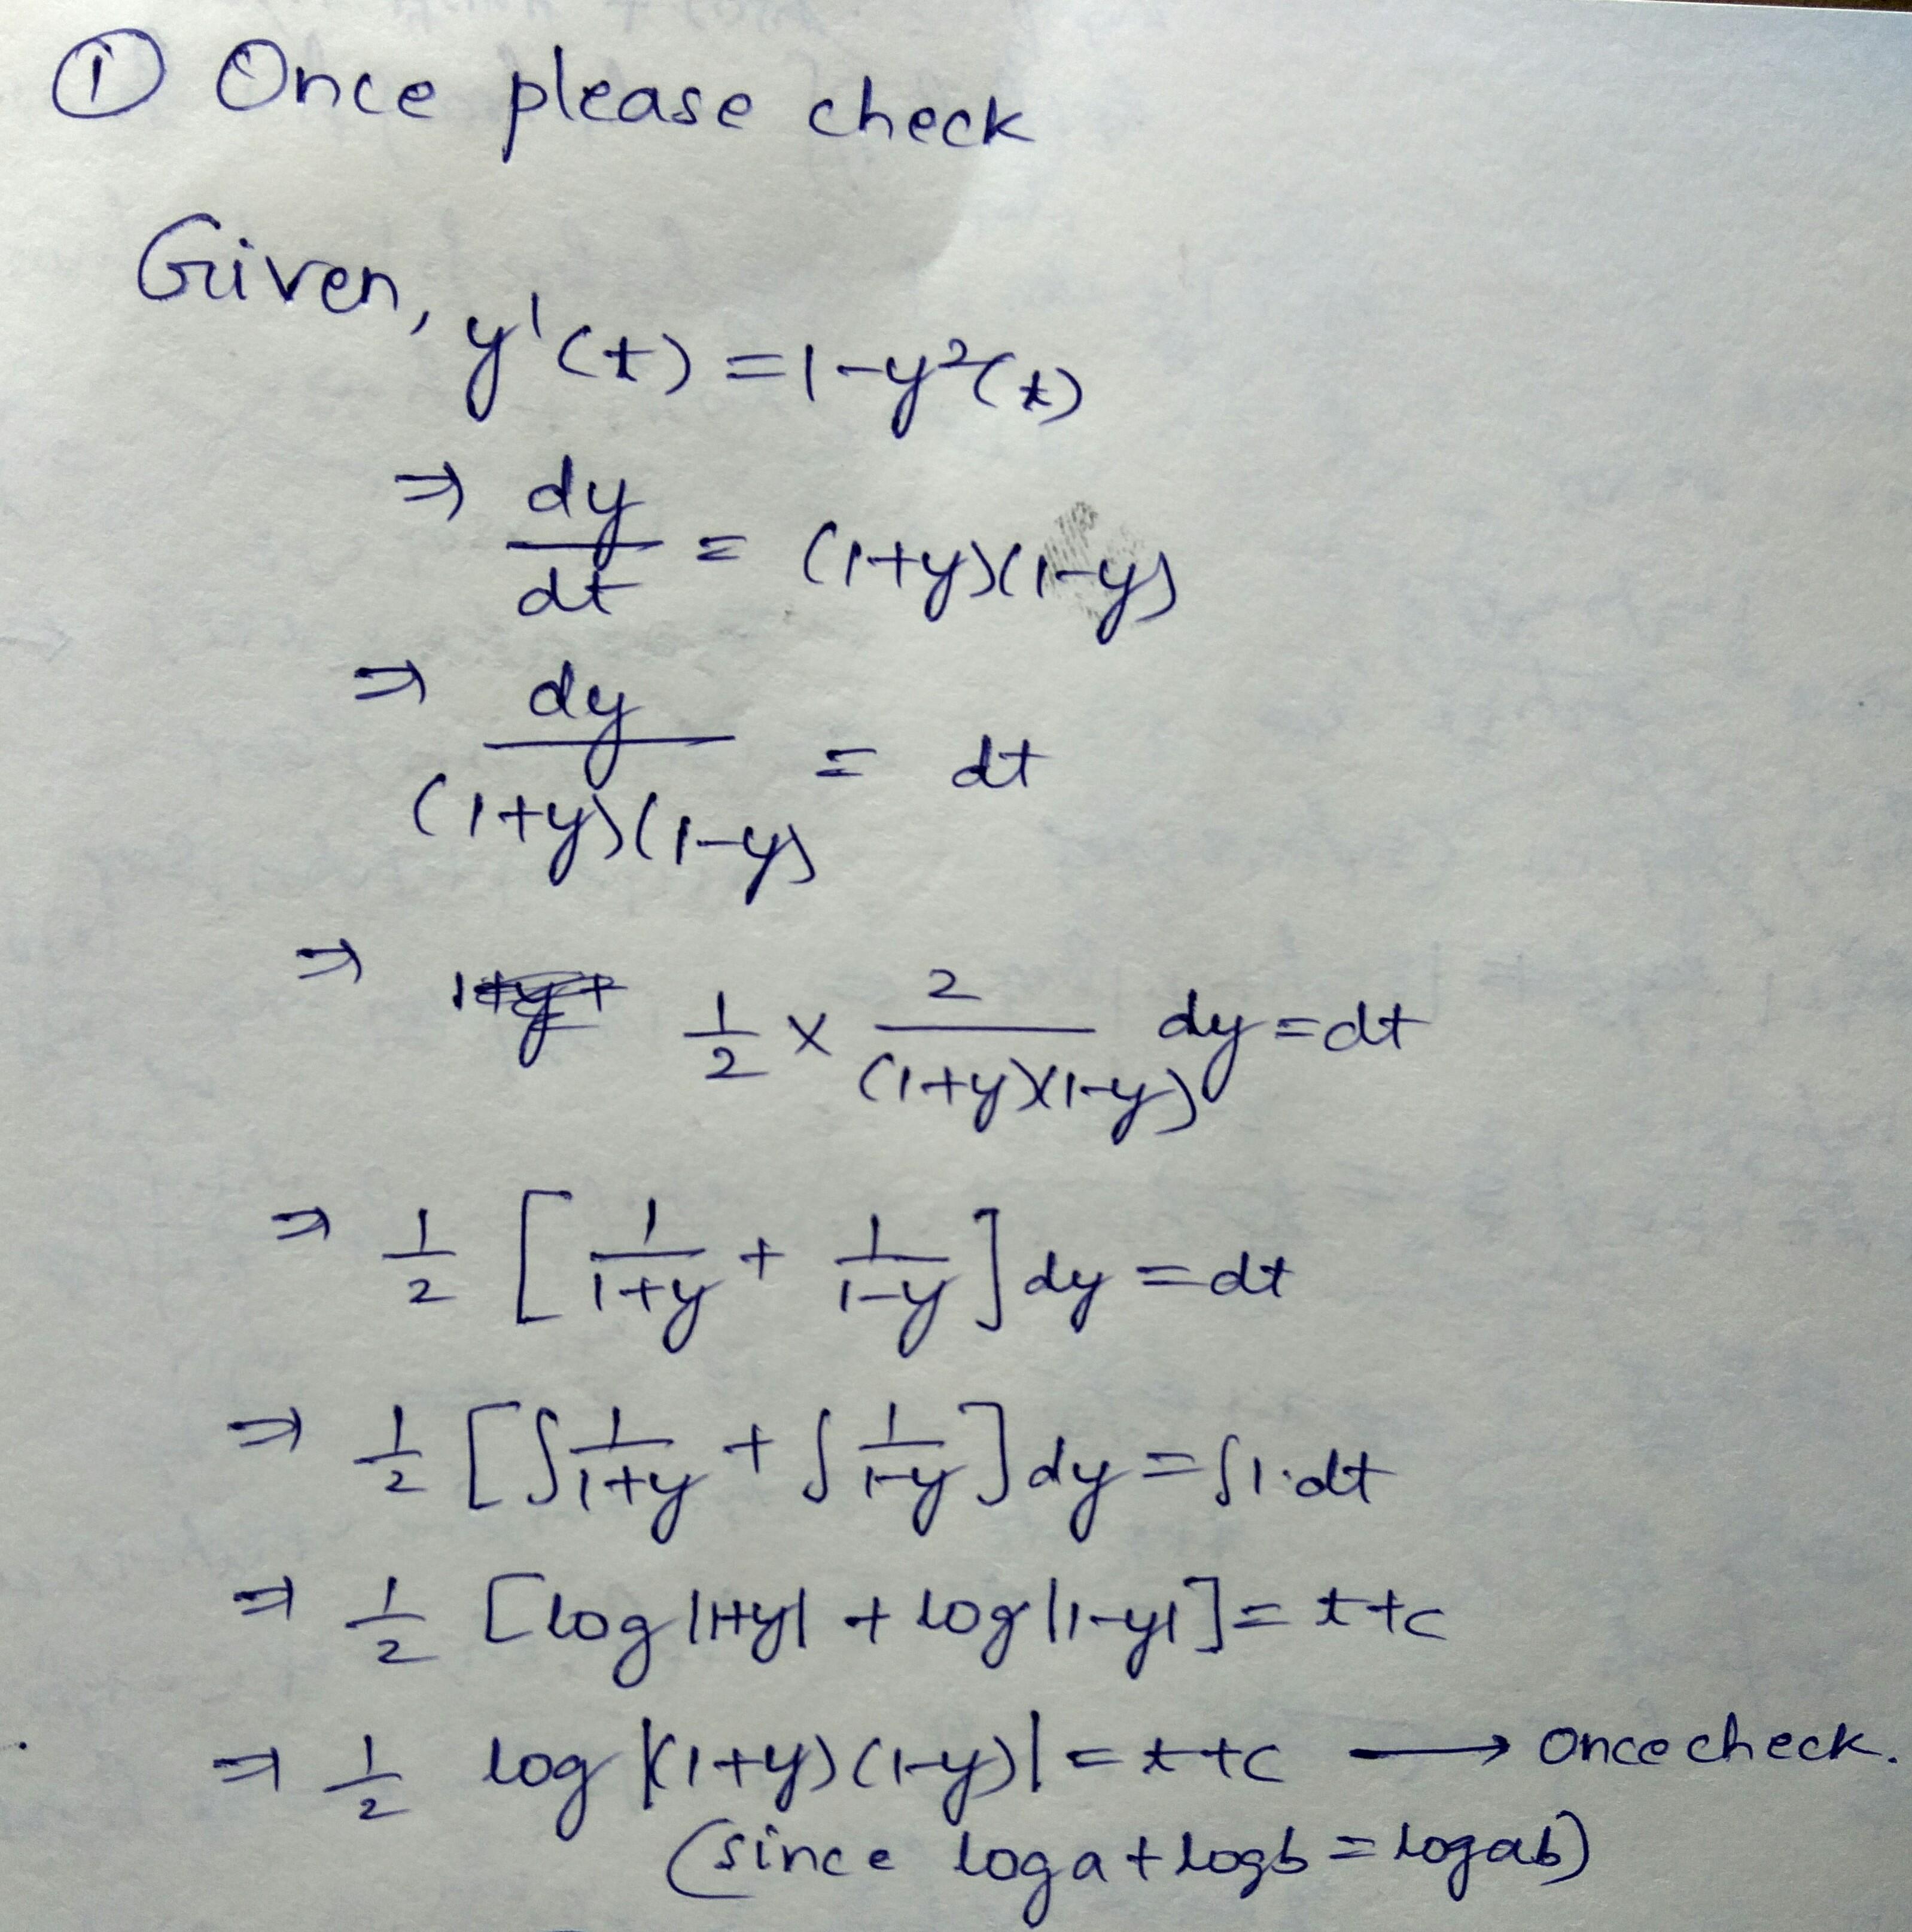 ① Once please check
Given, y'(t) = 1-y²(t)
⇒ dy/dt = (1+y)(1-y)
⇒ dy/(1+y)(1-y) = dt
⇒ 1/2 × 2/(1+y)(1-y) dy = dt
⇒ 1/2 [1/1+y + 1/1-y] dy = dt
⇒ 1/2 [∫1/1+y + ∫1/1-y] dy = ∫1·dt
⇒ 1/2 [log|1+y| + log|1-y|] = t+c
⇒ 1/2 log|(1+y)(1-y)| = t+c → Once check.
(since log a + log b = log ab)